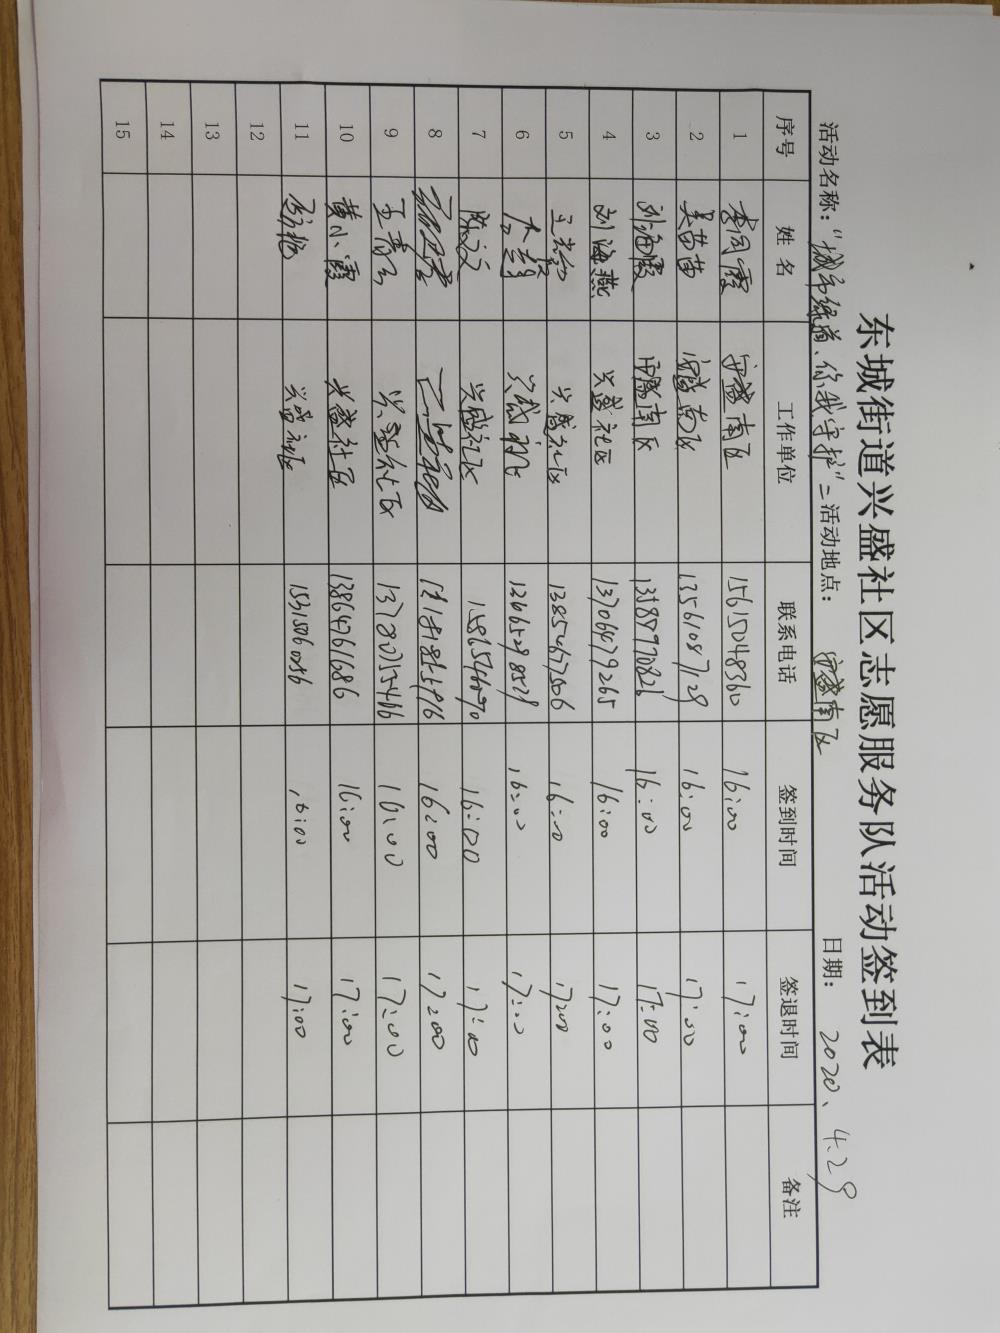 东城街道兴盛社区志愿服务队活动签到表
活动名称："城市绿道、你我守护"二 活动地点：安盛南区 日期：2020、4.29
序号 姓名 工作单位 联系电话 签到时间 签退时间 备注
1 李同霞 安盛南区 15615048360 16:00 17:00
2 吴苗苗 安盛南区 13561087129 16:00 17:00
3 刘海霞 安盛南区 13589970826 16:00 17:00
4 刘海燕 兴盛社区 13706479265 16:00 17:00
5 兴盛社区 13854673506 16:00 17:00
6 16:00 17:00
7 陈文文 兴盛社区 16:00 17:00
8 16:00 17:00
9 兴盛社区 16:00 17:00
10 黄小霞 兴盛社区 13864761686 16:00 17:00
11 兴盛社区 15315060086 16:00 17:00
12
13
14
15